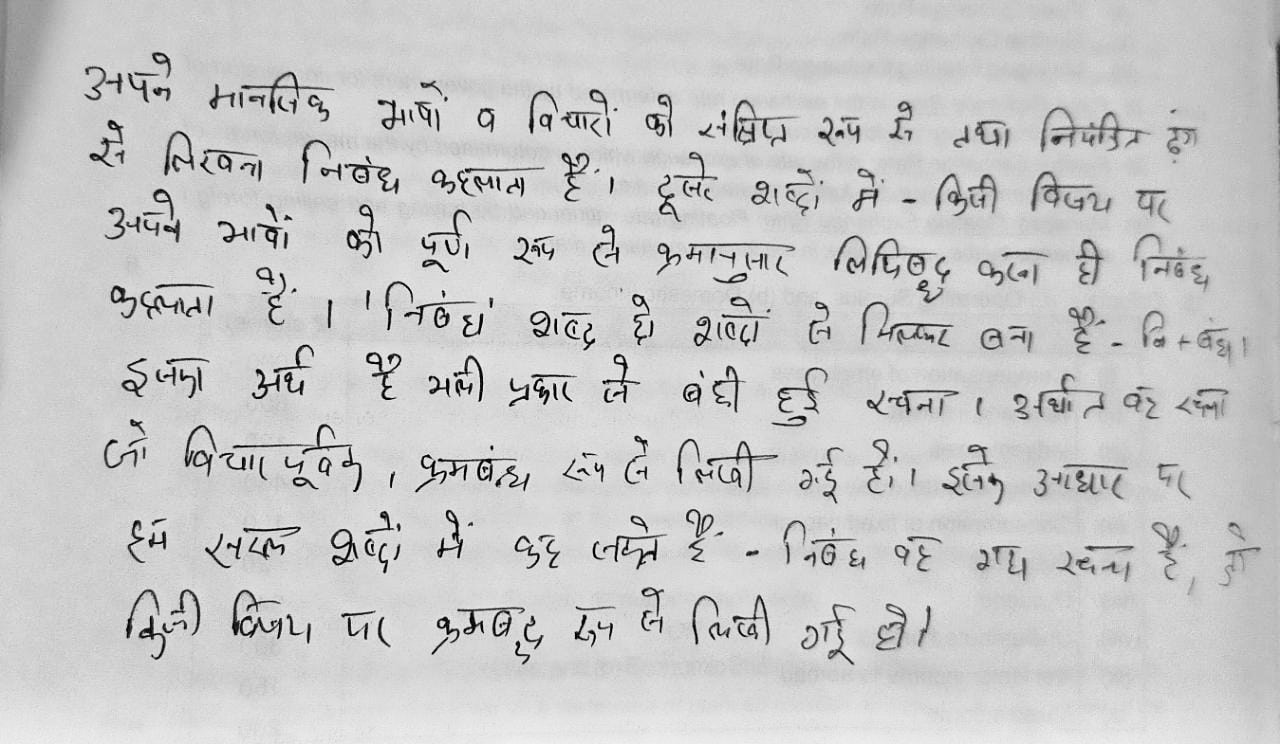 अपने मानसिक भावों व विचारों को संक्षिप्त रूप से तथा नियंत्रित ढंग
से लिखना निबंध कहलाता है। दूसरे शब्दों में - किसी विषय पर
अपने भावों को पूर्ण रूप से क्रमानुसार लिपिबद्ध करना ही निबंध
कहलाता है। 'निबंध' शब्द दो शब्दों से मिलकर बना है - नि + बंध।
इसका अर्थ है भली प्रकार से बंधी हुई रचना। अर्थात वह रचना
जो विचारपूर्वक, क्रमबन्ध रूप से लिखी गई हो। इसके आधार पर
हम सरल शब्दों में कह सकते हैं - निबंध वह गद्य रचना है, जो
किसी विषय पर क्रमबद्ध रूप से लिखी गई हो।